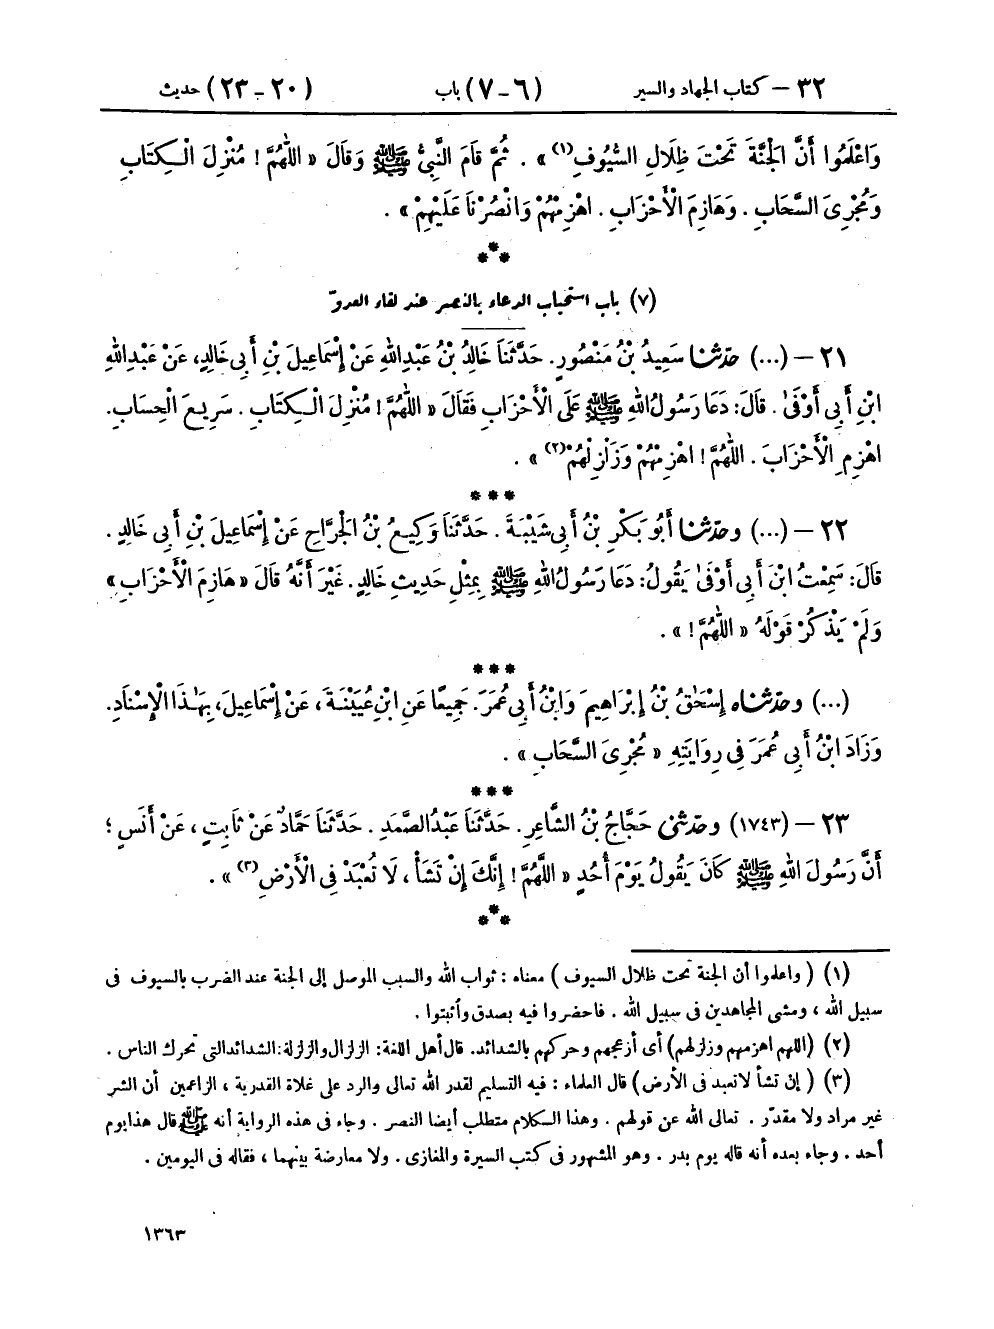 ٣٢ – كتاب الجهاد والسير (٦-٧) باب (٢٠-٢٣) حديث
وَاعْلَمُوا أَنَّ الْجَنَّةَ تَحْتَ ظِلَالِ السُّيُوفِ(١)» . ثُمَّ قَامَ النَّبِيُّ ﷺ وَقَالَ « اللّٰهُمَّ ! مُنْزِلَ الْكِتَابِ
وَمُجْرِيَ السَّحَابِ . وَهَازِمَ الْأَحْزَابِ . اهْزِمْهُمْ وَانْصُرْنَا عَلَيْهِمْ » .
***
(٧) باب استحباب الدعاء بالنصر عند لقاء العدوّ
٢١ – (...) حدّثنا سَعِيدُ بْنُ مَنْصُورٍ. حَدَّثَنَا خَالِدُ بْنُ عَبْدِاللهِ عَنْ إِسْمَاعِيلَ بْنِ أَبِي خَالِدٍ، عَنْ عَبْدِاللهِ
ابْنِ أَبِي أَوْفَىٰ . قَالَ: دَعَا رَسُولُ اللهِ ﷺ عَلَى الْأَحْزَابِ فَقَالَ « اللّٰهُمَّ ! مُنْزِلَ الْكِتَابِ . سَرِيعَ الْحِسَابِ.
اهْزِمِ الْأَحْزَابَ . اللّٰهُمَّ ! اهْزِمْهُمْ وَزَلْزِلْهُمْ(٢) » .
***
٢٢ – (...) وحدّثنا أَبُو بَكْرِ بْنُ أَبِي شَيْبَةَ . حَدَّثَنَا وَكِيعُ بْنُ الْجَرَّاحِ عَنْ إِسْمَاعِيلَ بْنِ أَبِي خَالِدٍ .
قَالَ: سَمِعْتُ ابْنَ أَبِي أَوْفَىٰ يَقُولُ: دَعَا رَسُولُ اللهِ ﷺ بِمِثْلِ حَدِيثِ خَالِدٍ. غَيْرَ أَنَّهُ قَالَ « هَازِمَ الْأَحْزَابِ »
وَلَمْ يَذْكُرْ قَوْلَهُ « اللّٰهُمَّ ! » .
***
(...) وحدّثناه إِسْحَٰقُ بْنُ إِبْرَاهِيمَ وَابْنُ أَبِي عُمَرَ. جَمِيعًا عَنِ ابْنِ عُيَيْنَةَ، عَنْ إِسْمَاعِيلَ، بِهَٰذَا الْإِسْنَادِ.
وَزَادَ ابْنُ أَبِي عُمَرَ فِي رِوَايَتِهِ « مُجْرِيَ السَّحَابِ » .
***
٢٣ – (١٧٤٣) وحدّثني حَجَّاجُ بْنُ الشَّاعِرِ. حَدَّثَنَا عَبْدُالصَّمَدِ . حَدَّثَنَا حَمَّادٌ عَنْ ثَابِتٍ ، عَنْ أَنَسٍ ؛
أَنَّ رَسُولَ اللهِ ﷺ كَانَ يَقُولُ يَوْمَ أُحُدٍ « اللّٰهُمَّ ! إِنَّكَ إِنْ تَشَأْ ، لَا تُعْبَدْ فِي الْأَرْضِ(٣) » .
***
(١) ( واعلموا أن الجنة تحت ظلال السيوف ) معناه : ثواب الله والسبب الموصل إلى الجنة عند الضرب بالسيوف في
سبيل الله ، ومشى المجاهدين في سبيل الله . فاحضروا فيه بصدق وأثبتوا .
(٢) (اللهم اهزمهم وزلزلهم) أي أزعجهم وحركهم بالشدائد. قال أهل اللغة: الزلزال والزلزلة:الشدائدالتي تحرك الناس .
(٣) ( إن تشأ لاتعبد في الأرض ) قال العلماء : فيه التسليم لقدر الله تعالى والرد على غلاة القدرية ، الزاعمين أن الشر
غير مراد ولا مقدّر . تعالى الله عن قولهم . وهذا الكلام متطلب أيضا النصر . وجاء في هذه الرواية أنه ﷺ قال هذا يوم
أحد . وجاء بعده أنه قاله يوم بدر . وهو المشهور في كتب السيرة والمغازي . ولا معارضة بينهما ، فقاله في اليومين .
١٣٦٣